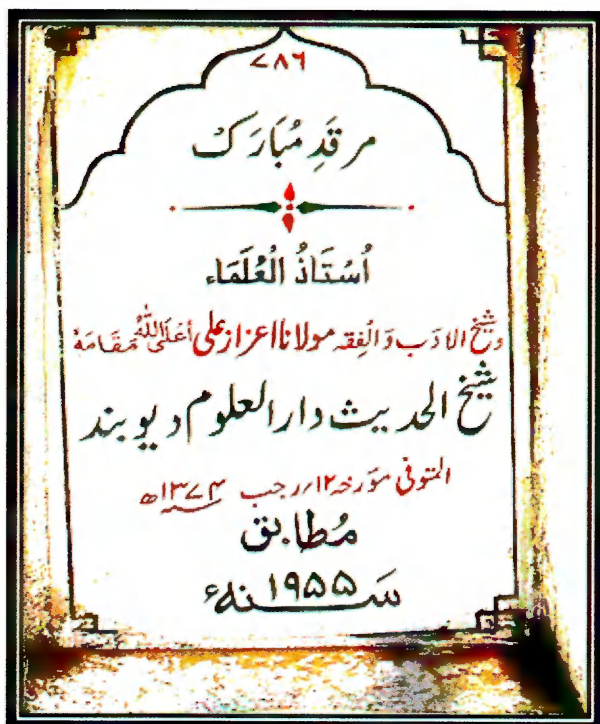 ۷۸۶
مرقدِ مُبَارَک
اُسْتَاذُ الْعُلَمَاء
وشیخ الادَب وَالْفِقہ مولانا اعزاز علی أعْلَی اللّٰہُ مَقَامَہٗ
شیخ الحدیث دارالعلوم دیوبند
المتوفی مؤرخہ ۱۲/رجب ۱۳۷۴ھ
مُطابق
سَنہ ۱۹۵۵ء